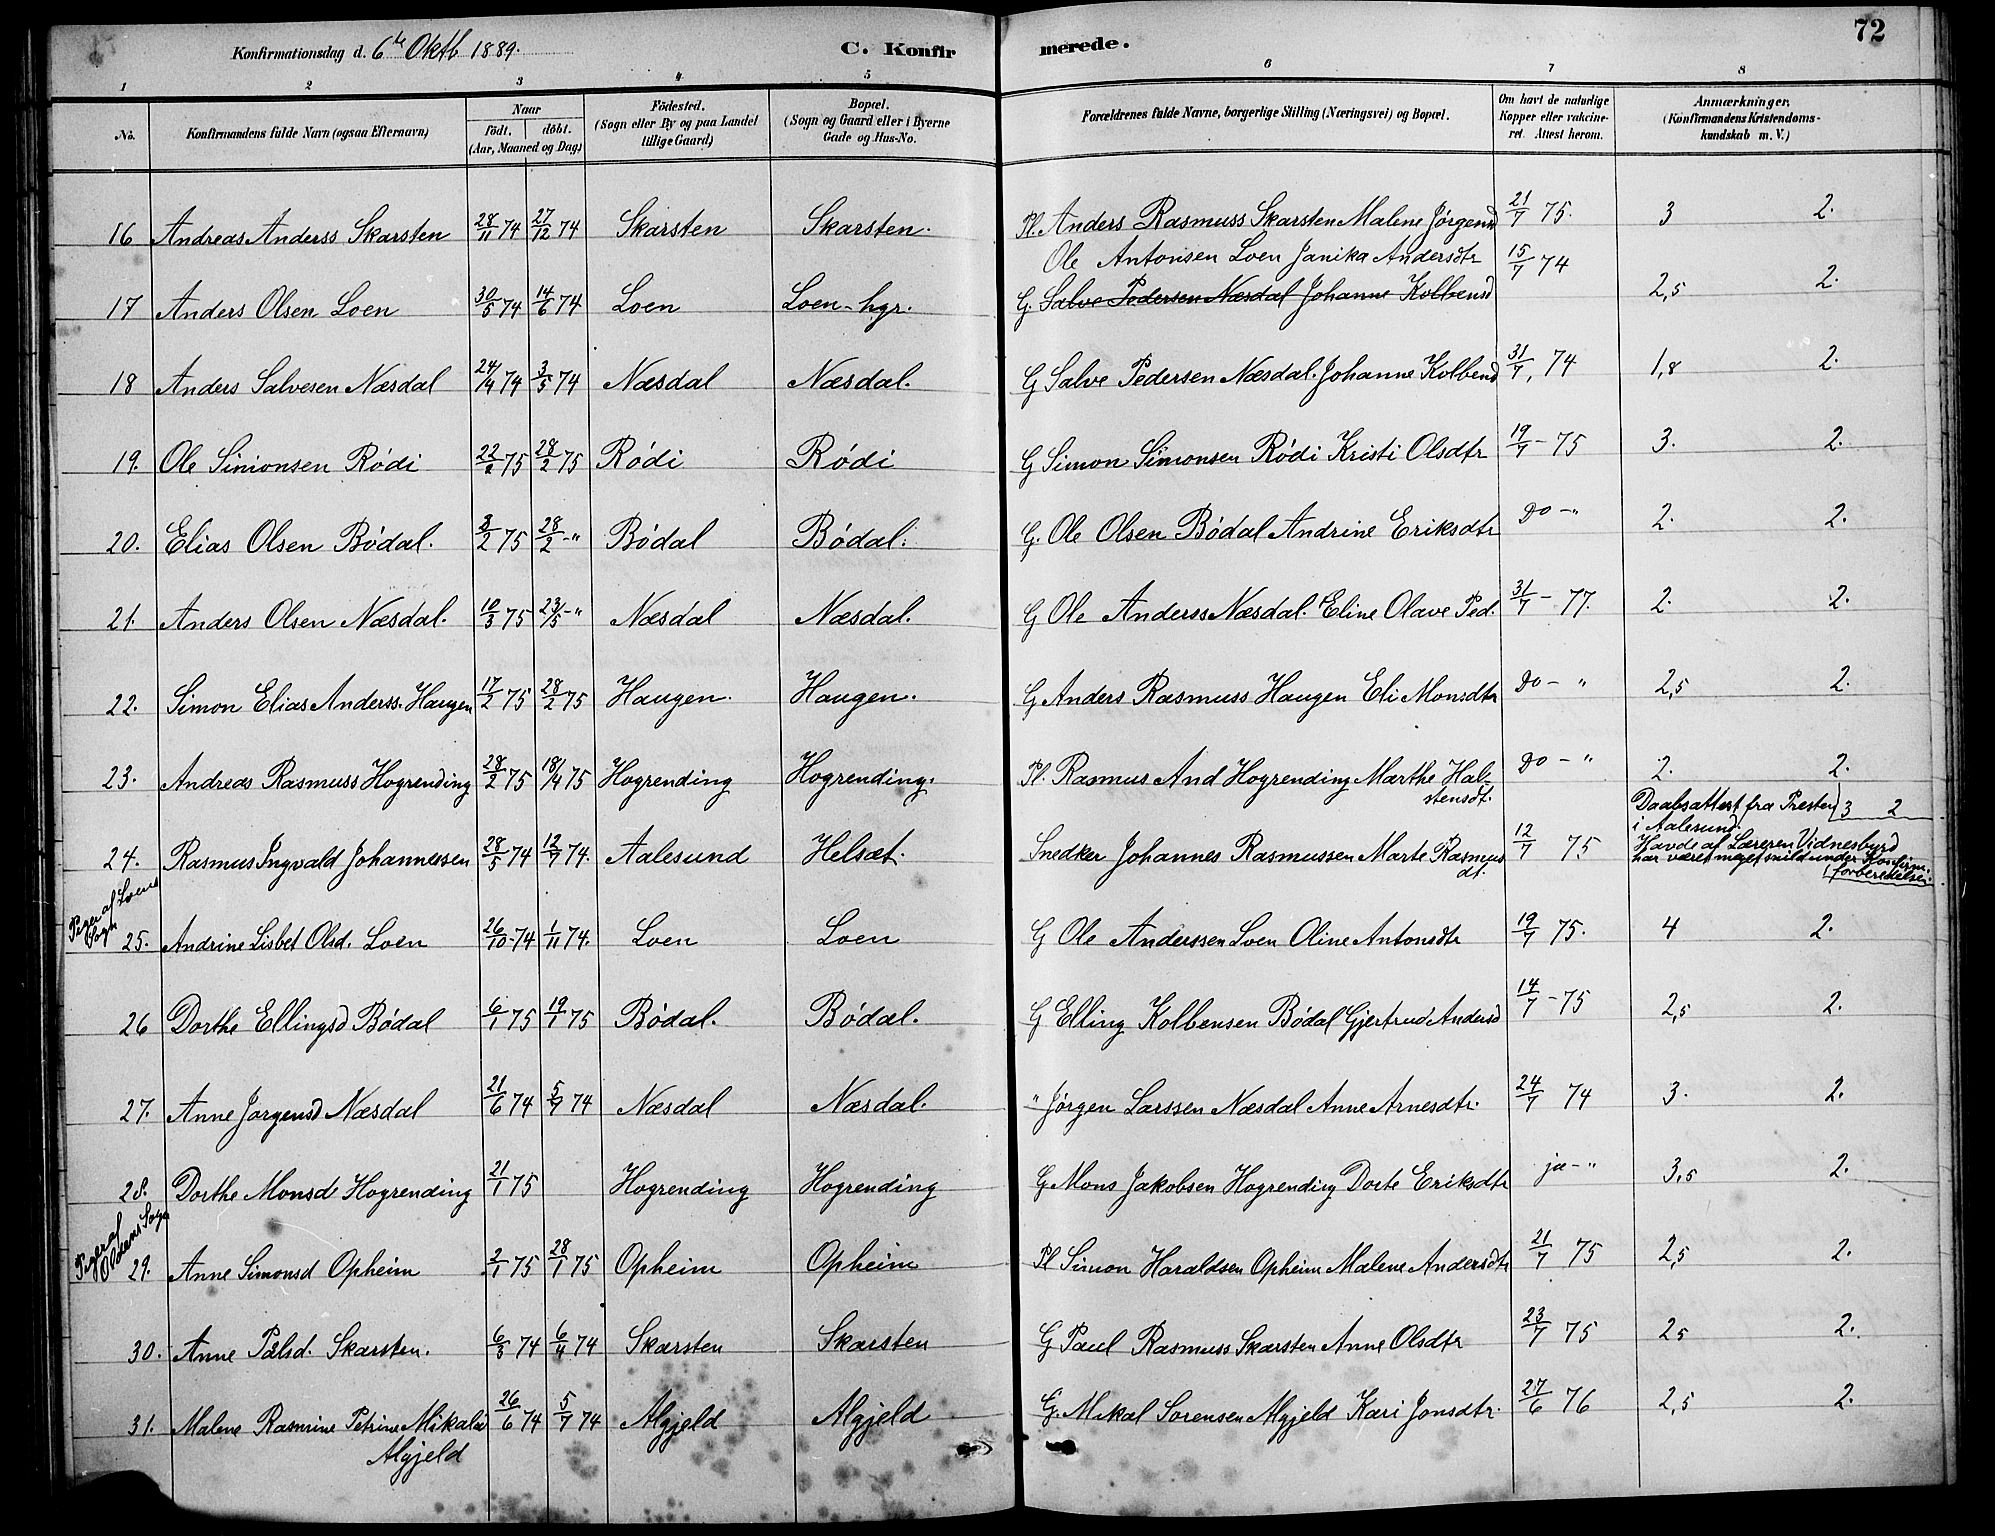 72
Konfirmationsdag d. 6te Oktb 1889. C. Konfirmerede.
1 2 3 4 5 6 7 8
No. Konfirmandens fulde Navn (ogsaa Efternavn) Naar født. døbt. (Aar, Maaned og Dag) Födested. (Sogn eller By og paa Landet tillige Gaard) Bopæl. (Sogn og Gaard eller i Byerne Gade og Hus-No. Forældrenes fulde Navne, borgerlige Stilling (Næringsvei) og Bopæl. Om havt de naturlige Kopper eller vakcineret. Attest herom. Anmærkninger. (Konfirmandens Kristendomskundskab m. V.)
16 Andreas Anderss Skarsten 28/11 74 27/12 74 Skarsten Skarsten. Pl. Anders Rasmuss Skarsten Malene Jørgensd 21/7 75. 3 2.
Ole Antonsen Loen Janika Andersdtr 15/7 74
17 Anders Olsen Loen 30/5 74 14/6 74 Loen Loen-hgr. G. Salve Pedersen Næsdal Johanne Kolbensd 2,5 2.
18 Anders Salvesen Næsdal 24/4 74 3/5 74 Næsdal Næsdal. G Salve Pedersen Næsdal. Johanne Kolbensd 31/7, 74 1,8 2.
19. Ole Simonsen Rødi 22/2 75 28/2 75 Rødi Rødi G Simon Simonsen Rødi Kristi Olsdtr 19/7 - 75 3. 2.
20. Elias Olsen Bødal. 3/2 75 28/2 - " Bødal Bødal. G. Ole Olsen Bødal Andrine Eriksdtr Do - " 2. 2.
21. Anders Olsen Næsdal. 10/3 75 23/5 - " Næsdal Næsdal. G Ole Anderss Næsdal. Eline Olave Ped. 31/7 - 77. 2. 2.
22. Simon Elias Anderss. Haugen 17/2 75 28/2 75 Haugen. Haugen. G Anders Rasmuss Haugen Eli Monsdtr Do - " 2,5 2.
23. Andreas Rasmuss Hogrending 28/2 75 18/4 75 Hogrending Hogrending. Pl. Rasmus And Hogrending Marthe Hal- Do - " 2. 2.
stensdt.
Daabsattest fra Presten 3 2
i Aalesund.
24. Rasmus Ingvald Johannessen 28/5 74 12/7 74. Aalesund Helsæt. Snedker Johannes Rasmussen Marte Rasmus 12/7 75 Havde af Læreren Vidnesbyrd
dt. har været meget snild under Konfirm.
forberedelsen.
Piger af Loens
Sogn
25. Andrine Lisbet Olsd. Loen 26/10 - 74 1/11 74. Loen Loen G Ole Anderssen Loen Oline Antonsdtr 19/7 75. 4 2.
26 Dorthe Ellingsd Bødal 6/1 75 19/1 75 Bødal. Bødal. G Elling Kolbensen Bødal Gjertrud Andersd 14/7 - 75 2,5 2.
27. Anne Jørgensd Næsdal 21/6 74 5/7 74 Næsdal Næsdal. " Jørgen Larssen Næsdal Anne Arnesdtr. 24/7 74 3. 2.
28. Dorthe Monsd Hogrending 21/1 75 Hogrending Hogrending G Mons Jakobsen Hogrending Dorte Eriksdtr ja - " 3,5 2.
Piger af
Oldens Sogn
29. Anne Simonsd Opheim 2/1 75 28/1 75 Opheim Opheim Pl Simon Haraldsen Opheim Malene Andersdtr 21/7 75 2,5 2.
30. Anne Pålsd. Skarsten. 6/3 74 6/4 74 Skarsten Skarsten G Paul Rasmuss Skarsten Anne Olsdtr 23/7 75 25 2.
31. Malene Rasmine Petrine Mikalsd 26/6 74 5/7 74 Algjeld Algjeld G. Mikal Sorensen Algjeld Kari Jonsdtr. 27/6 76 2,5 2.
Algjeld